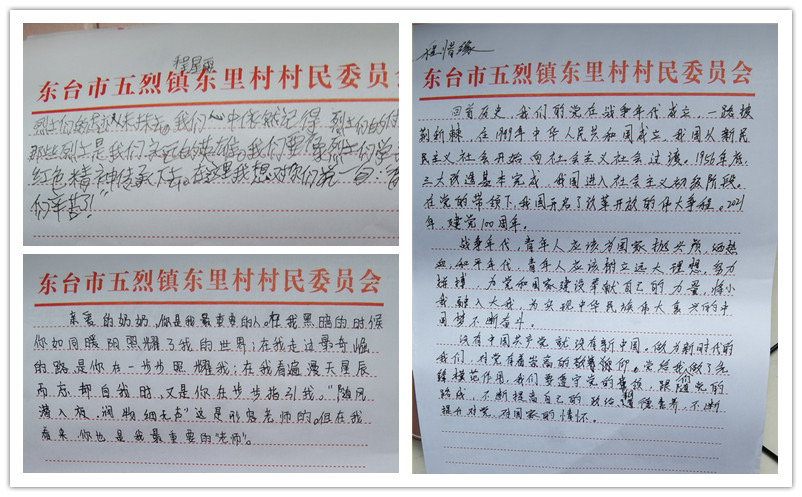 东台市五烈镇东里村村民委员会
我们心中依然记得
那些烈士是我们永远的英雄。我们要像烈士们学
红色精神传承下去。在这里我想对你们说一句:
们辛苦了!”
东台市五烈镇东里村村民委员会
亲爱的奶奶,你是我最重要的人。在我黑暗的时候
你如同暖阳照耀了我的世界;在我走过崎岖
的路,是你在一步步照耀我;在我看遍漫天星辰
而忘却自我时,又是你在步步指引我。“随风
潜入夜,润物细无声”这是形容老师的。但在我
看来,你也是我最重要的“老师”。
东台市五烈镇东里村村民委员会
回首历史,我们的党在战争年代成立,一路披
荆斩棘,在1949年中华人民共和国成立,我国从新民
主主义社会开始向社会主义社会过渡。1956年底,
三大改造基本完成,我国进入社会主义初级阶段。
在党的带领下,我国开启了改革开放的伟大事程。2021
年,建党100周年。
战争年代,青年人应该为国家抛头颅,洒热
血,和平年代,青年人应该树立远大理想,努力
拼搏,为党和国家建设奉献自己的力量,将小
我融入大我,为实现中华民族伟大复兴的中
国梦不断奋斗。
没有中国共产党就没有新中国。做为新时代的
我们,对党有着崇高的敬意。党给我做了先
锋模范作用,我们要遵守党的,跟随党的
路线,不断提高自己的政治,道德素养,不断
提升对党、对国家的情怀。